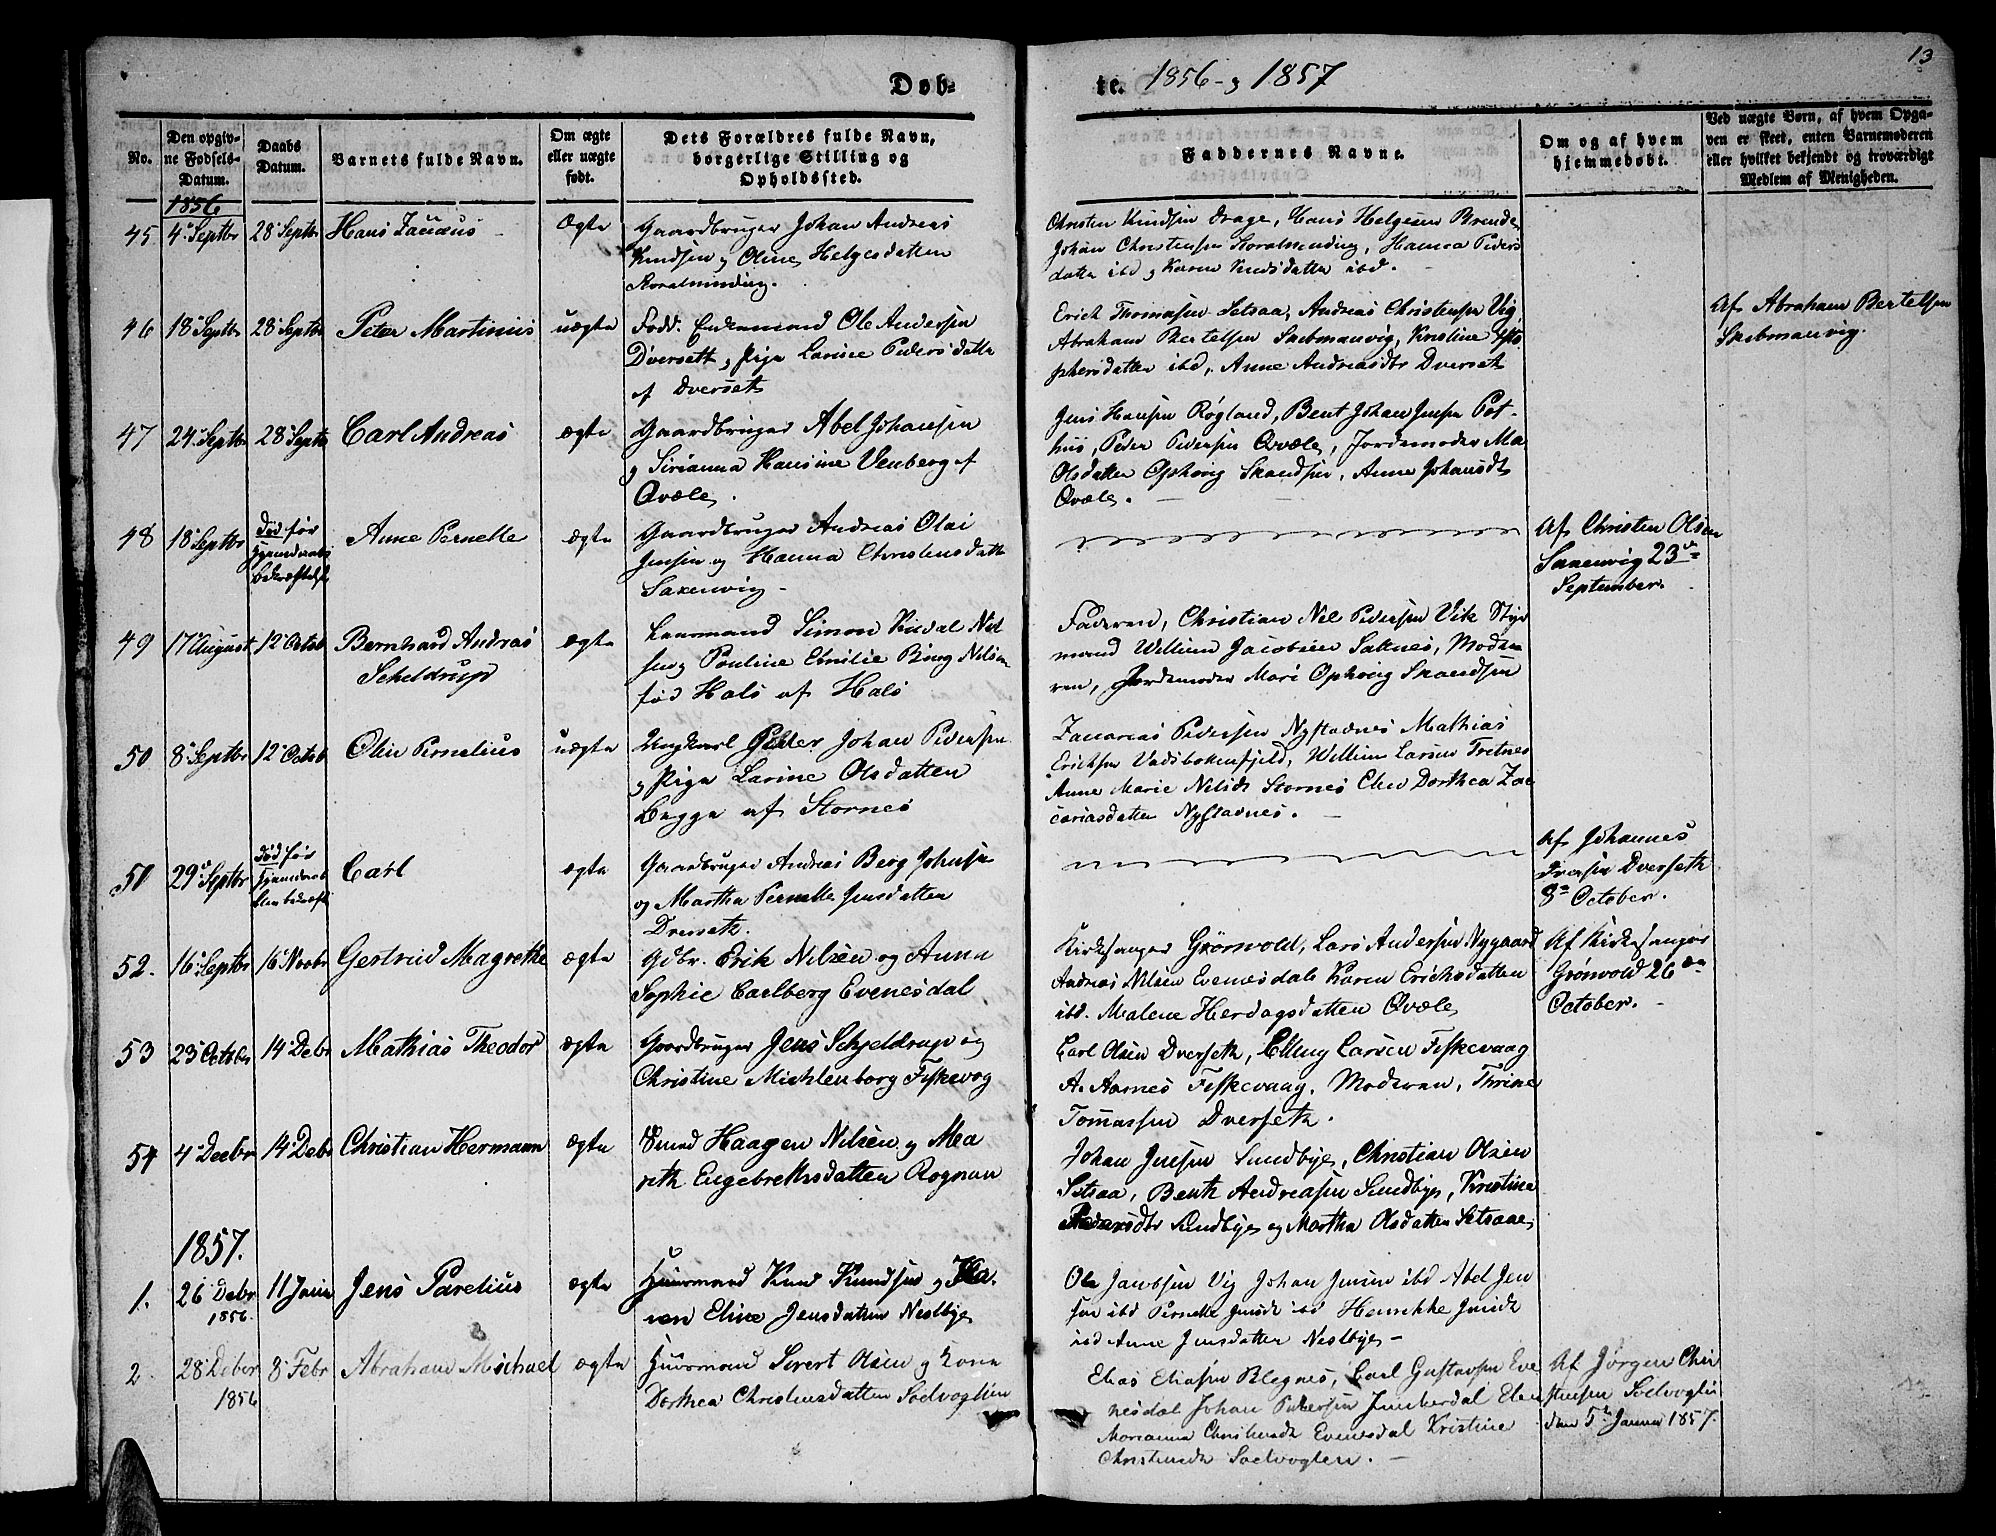 13
Døb-
te. 1856 - 1857
No.
Den opgiv-
ne Fødsels-
Datum.
Daabs
Datum.
Barnets fulde Navn.
Om ægte
eller uægte
født.
Dets Forældres fulde Navn,
borgerlige Stilling og
Opholdssted.
Faddernes Navne.
Om og af hvem
hjemmedøbt.
Ved uægte Børn, af hvem Opga-
ven er skeet, enten Barnemoderen
eller hvilket bekjendt og troværdigt
Medlem af Menigheden.
1856
45 4 Septbr 28 Septbr Hans Zacæus Ægte
Gaardbruger Johan Andreas
Knudsen og Oline Helgesdatter
Storalmending.
Christen Knudsen Drage, Hans Helgesen Brende
Johan Christensen Storalmending, Hanna Peders
datter ibd og Karen Knudsdatter ibd.
46 18 Septbr 28 Septbr Peter Martinius uægte
Enkemand Ole Andersen
Dverset, Pige Larine Pedersdatter
af Dverset
Erich Thomasen Setsaa, Andreas Christensen Vig
Abraham Bertelsen Saxenvig, Kristine
phersdatter ibd, Anne Andreasdtr Dverset
Af Abraham Bertelsen
47 24 Septbr 28 Septbr Carl Andreas ægte
Gaardbruger Abel Johansen
og Sirianna Hansine Venberg af
Qvæle.
Jens Hansen Røgland, Bent Johan Jensen Pot-
hus, Peder Pedersen Qvæle, Jordemoder Ma
Olsdatter Ophvig Skandsen, Anne Johansdt
Qvæle.
48 18 Septbr død før
Anne Pernelle ægte
Gaardbruger Andreas Olai
Jensen og Hanna Christensdatter
Saxenvig
Af Christen Olsen
Saxenvig 23
September.
49 17 August 12 Octob Bernhard Andreas
Scheldrup ægte
Simon Kildal Niel
sen og Pauline Emilie Bing Nilsen
fød Hals af Hals
Faderen, Christian Nel Pedersen Vik Styr
mand Willum Jacobsen Saltnes, Mode
ren, Jordemoder Mari Ophvig Skandsen
50 8 Septbr 12 Octob Olai Pernelius uægte
Ungkarl Peder Johan Pedersen
og Pige Larine Olsdatter
Bugge af Stornes
Zacarias Pedersen Nystadnes Mathias
Ericksen Vadsbokenfjeld, Willum Larsen Tretnes
Anne Marie Nilsdt Stornes Elen Dorthea Zac
cariasdatter Nystadnes.
51 29 Septbr død før
Carl ægte
Gaardbruger Andreas Berg Johnsen
og Martha Pernelle Jensdatter
Dverseth.
Af Johannes
Dverseth
8 October.
52. 16 Septbr 16 Novbr Gertrud Magrethe ægte
Gdbr. Erik Nilsen og Anna
Sophie Carlberg Evenesdal
Kirkesanger Grønvold, Lars Andersen Nygaard
Andreas Nilsen Evenesdal Karen Erichsdatter
ibd. Malene Herdagsdatter Qvæle
Af Kirkesanger
Grønvold 26
October.
53 23 Octobr 14 Debr Mathias Theodor ægte
Gaardbruger Jens Schjeldrup og
Christine Michlenborg Fiskevog
Carl Olsen Dverseth, Elling Larsen Fiskevaag
A. Aarnes Fiskevaag, Moderen, Thrine
Tomassen Dverseth.
54 4 Decbr 14 Debr Christian Hermann ægte
Smed Haagen Nilsen og Mea
reth Engebrethsdatter Rognan
Johan Jensen Sundbye, Christian Olsen
Setsaa, Benth Andreasen Sundbye, Kristine
Pedersdtr Sundbye og Martha Olsdatter Setsaae
1857.
1. 26 Debr
1856. 11 Janu Jens Parelius ægte
Huusmand Knud Knudsen og Ka-
ren Eline Jensdatter Nestbye
Ole Jacobsen Vig Johan Jensen ibd Abel Jen
sen ibd Pernelle Jensdt ibd Henrikke Jensdt
ibd Anne Jensdatter Nestbye
2. 28 Deber
1856 8 Febr Abraham Michael ægte
Huusmand Sivert Olsen og Kone
Dorthea Christensdatter Soelvoglien
Elias Eliasen Blegnes, Carl Gustavsen Eve
nesdal Johan Pedersen Junkerdal Elen
Marianna Christensdt Evenesdal Kristine
Christensdt Soelvoglien.
Af Jørgen Chri
stensen Soelvoglien
den 5 Januar 1857.